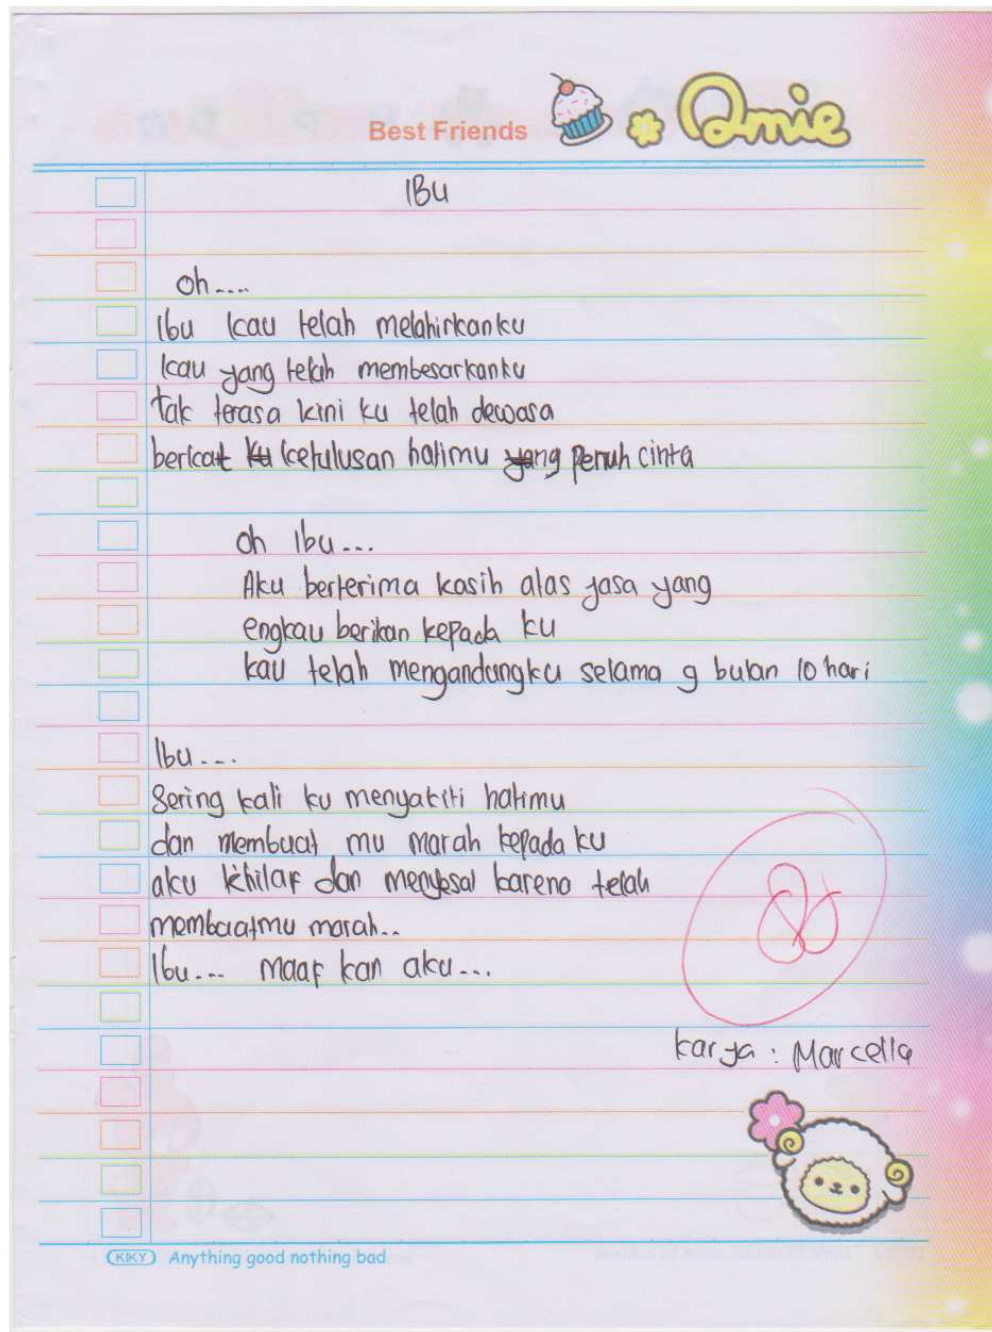 Best Friends
Qmie
IBU
oh....
Ibu kau telah melahirkanku
kau yang telah membesarkanku
tak terasa kini ku telah dewasa
berkat ku ketulusan hatimu yang penuh cinta
oh Ibu...
Aku berterima kasih atas jasa yang
engkau berikan kepada ku
kau telah mengandungku selama 9 bulan 10 hari
Ibu....
Sering kali ku menyakiti hatimu
dan membuat mu marah kepada ku
aku khilaf dan menyesal karena telah
membuatmu marah..
Ibu... maaf kan aku...
karya : Marcella
KIKY Anything good nothing bad